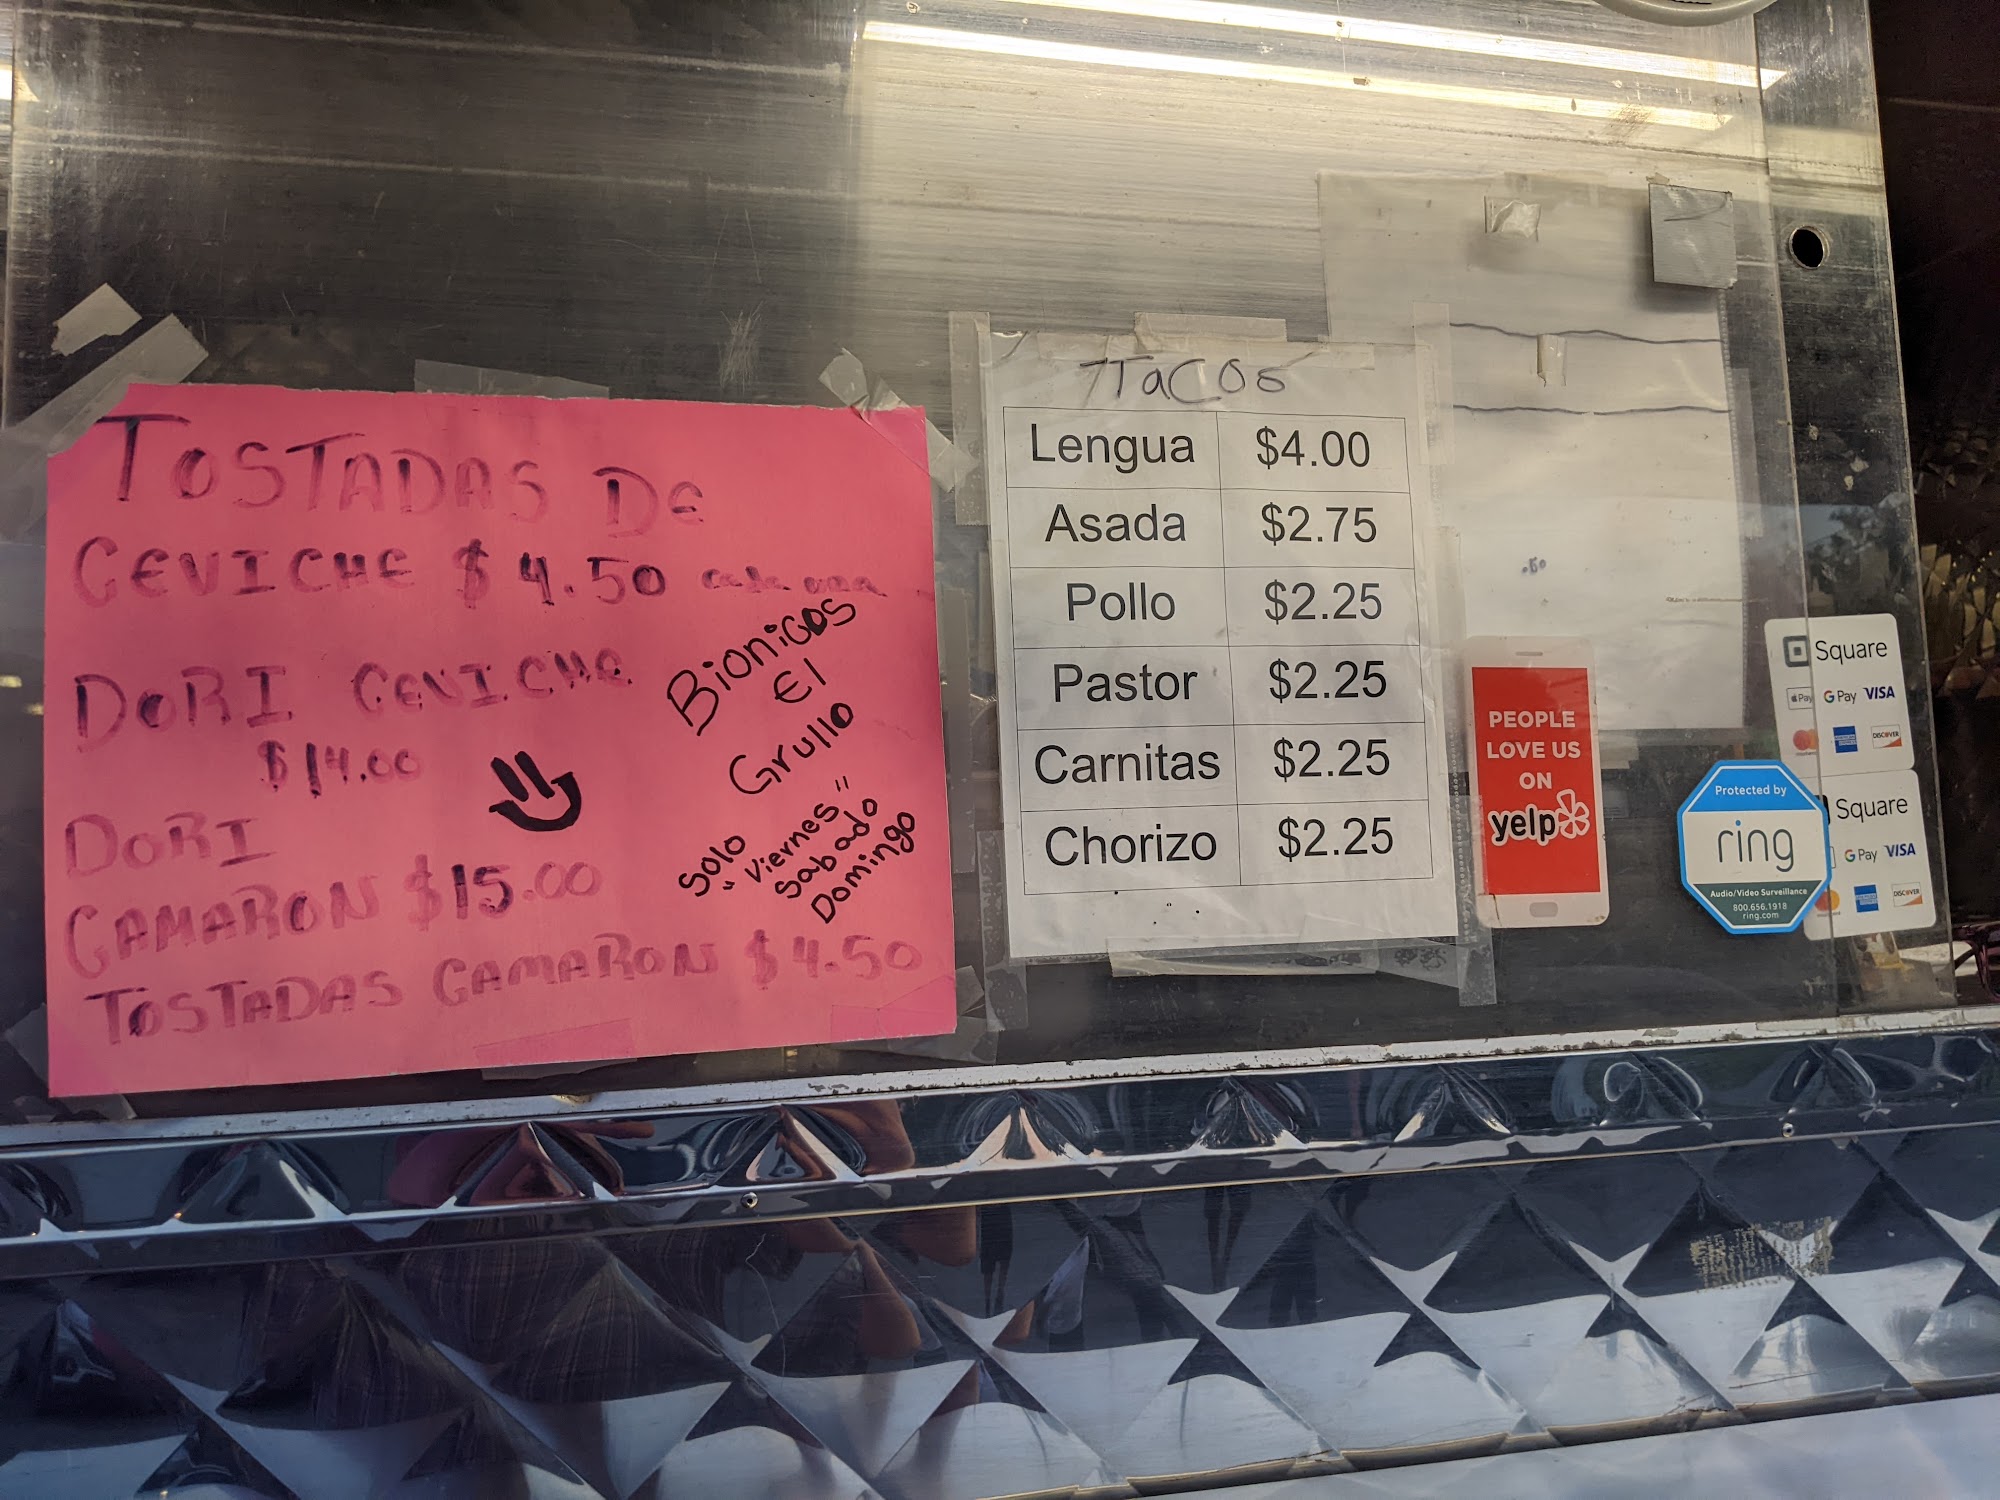 TOSTADAS DE
CEVICHE $4.50 cada una
DORI CEVICHE
$14.00
DORI
CAMARON $15.00
TOSTADAS CAMARON $4.50
Bionicos
El
Grullo
Solo
"Viernes"
Sabado
Domingo
TaCOS
Lengua $4.00
Asada $2.75
Pollo $2.25
Pastor $2.25
Carnitas $2.25
Chorizo $2.25
PEOPLE
LOVE US
ON
yelp
Protected by
ring
Audio/Video Surveillance
800.656.1918
ring.com
Square
Pay G Pay VISA
DISCOVER
Square
G Pay VISA
DISCOVER